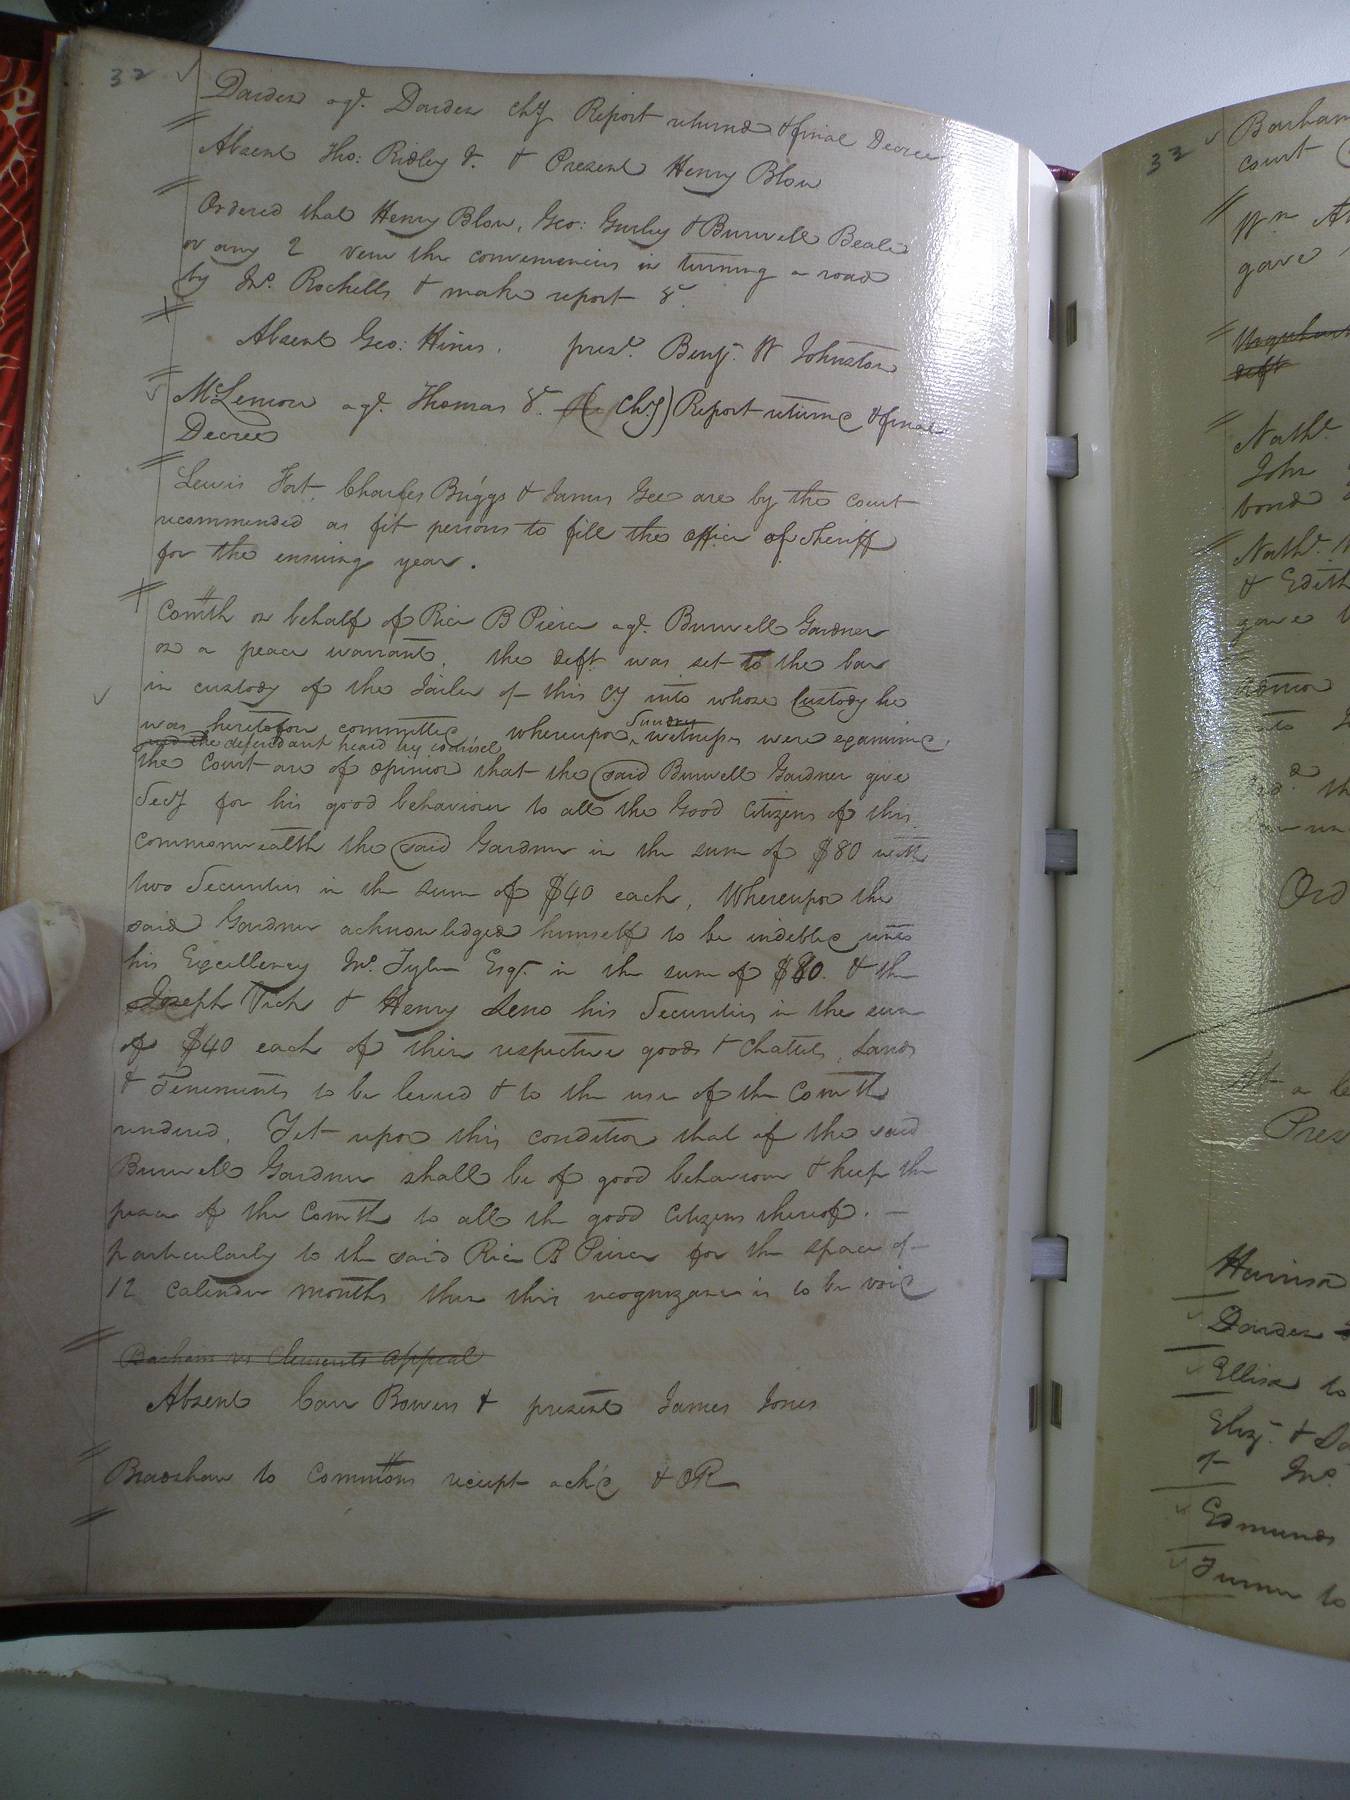 32
Darden agt. Darden Chy Report returned & final Decree
Absent Tho: Ridley & Present Henry Blow
Ordered that Henry Blow, Geo: Gurley & Burwell Beale
or any 2 view the conveniencies in turning a road
by Jno. Rochells & make report &c
Absent Geo: Hines. prest. Benj. W Johnston
McLemore agt. Thomas &c. (Chy) Report returned & final
Decree
Lewis Fort, Charles Briggs & James Gee are by the court
recommended as fit persons to fill the office of Sheriff
for the ensuing year.
Comth on behalf of Rice B Pierce agt. Burwell Gardner
on a peace warrant. the deft was set to the bar
in custody of the Jailer of this Cy into whose custody he
was heretofore committed, whereupon Sundry witnesses were examined
and the defendant heard by counsel
the Court are of opinion that the said Burwell Gardner give
Secy for his good behaviour to all the Good Citizens of this
commonwealth the said Gardner in the sum of $80 with
two Securities in the sum of $40 each, Whereupon the
said Gardner acknowledged himself to be indebted unto
his Excellency Jno. Tyler Esqr. in the sum of $80. & the
Joseph Vick & Henry Seno his Securities in the sum
of $40 each of their respective goods & chattels, Lands
& Tenements to be levied & to the use of the Comth
rendered. Yet upon this condition that if the said
Burwell Gardner shall be of good behaviour & keep the
peace of the Comth to all the good citizens thereof. —
particularly to the said Rice B Pierce for the space of
12 calender months then this recognizance is to be void
Barham vs Clements appeal
Absent Carr Bowers & present James Jones
Bradshaw to Commons receipt ack'd & OR
33
Barham
court
Wm
gave
deft
Nathl.
John
bond
Nathl.
& Edith
gave
Ord
At a
Pres
Harrison
Darden
Ellis to
Eliz. &
of Jno.
Edmunds
Turner to